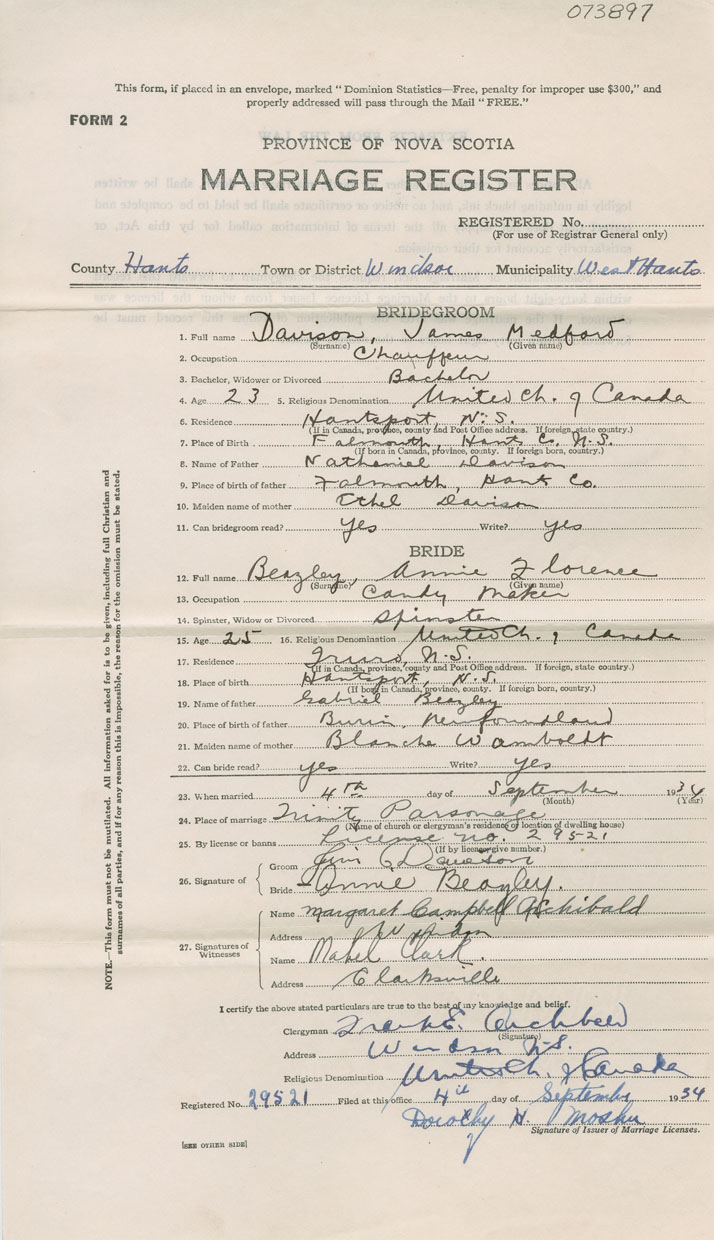 073897
This form, if placed in an envelope, marked "Dominion Statistics—Free, penalty for improper use $300," and
properly addressed will pass through the Mail "FREE."
FORM 2
PROVINCE OF NOVA SCOTIA
MARRIAGE REGISTER
REGISTERED No.
(For use of Registrar General only)
County Hants Town or District Windsor Municipality West Hants
BRIDEGROOM
1. Full name Davison, James Medford
(Surname) (Given name)
2. Occupation Chauffeur
3. Bachelor, Widower or Divorced Bachelor
4. Age 23 5. Religious Denomination United Ch. of Canada
6. Residence Hantsport, N.S.
(If in Canada, province, county and Post Office address. If foreign, state country.)
7. Place of Birth Falmouth, Hants Co. N.S.
(If born in Canada, province, county. If foreign born, country.)
8. Name of Father Nathaniel Davison
9. Place of birth of father Falmouth, Hants Co.
10. Maiden name of mother Ethel Davison
11. Can bridegroom read? Yes Write? Yes
BRIDE
12. Full name Beazley, Annie Florence
(Surname) (Given name)
13. Occupation Candy Maker
14. Spinster, Widow or Divorced Spinster
15. Age 25 16. Religious Denomination United Ch. of Canada
17. Residence Truro, N.S.
(If in Canada, province, county and Post Office address. If foreign, state country.)
18. Place of birth Hantsport, N.S.
(If born in Canada, province, county. If foreign born, country.)
19. Name of father Gabriel Beazley
20. Place of birth of father Burin, Newfoundland
21. Maiden name of mother Blanche Wamboldt
22. Can bride read? yes Write? Yes
23. When married 4th day of September 1934
(Month) (Year)
24. Place of marriage Trinity Parsonage
(Name of church or clergyman's residence or location of dwelling house)
25. By license or banns License no. 29521
(If by license give number.)
26. Signature of
Groom Jim Davison
Bride Annie Beazley.
27. Signatures of Witnesses
Name Margaret Campbell Archibald
Address Windsor
Name Mabel Clark.
Address Clarksville
I certify the above stated particulars are true to the best of my knowledge and belief.
Clergyman Frank E. Archibald
(Signature)
Address Windsor N.S.
Religious Denomination United Ch. of Canada
Registered No. 29521 Filed at this office 4th day of September 1934
Dorothy H. Mosher
Signature of Issuer of Marriage Licenses.
[SEE OTHER SIDE]
NOTE.—This form must not be mutilated. All information asked for is to be given, including full Christian and
surnames of all parties, and if for any reason this is impossible, the reason for the omission must be stated.